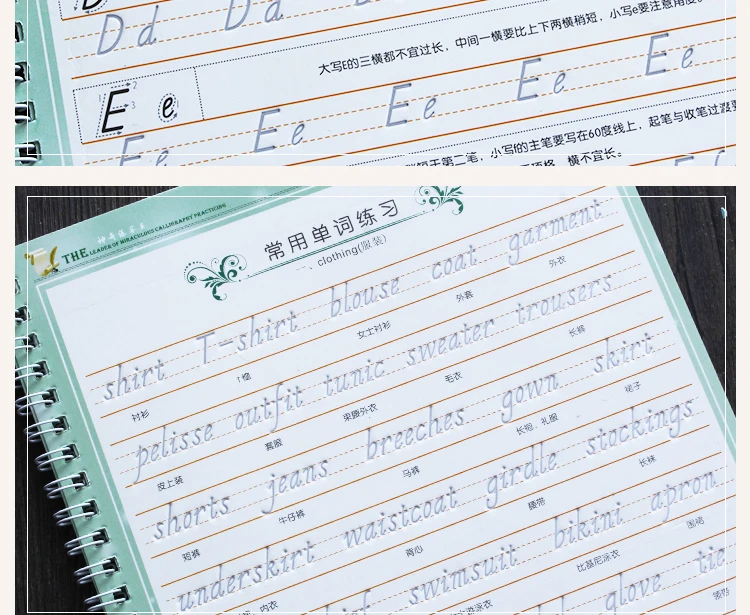 D d D d
大写E的三横都不宜过长，中间一横要比上下两横稍短，小写e要注意角度。
E e E e E e E e E e
E e
第二笔，小写f的主笔要写在60度线上，起笔与收笔过
横不宜长。
THE LEADER OF MIRACULOUS CALLIGRAPHY PRACTICING
常用单词练习
一、clothing(服装)
shirt T-shirt blouse coat garment
衬衫 T恤 女士衬衫 外套 外衣
pelisse outfit tunic sweater trousers
皮上装 套服 束腰外衣 毛衣 长裤
shorts jeans breeches gown skirt
短裤 牛仔裤 马裤 长袍、礼服 裙子
underskirt waistcoat girdle stockings
内衣 背心 腰带 长袜
swimsuit bikini apron
比基尼泳衣 围裙
glove tie